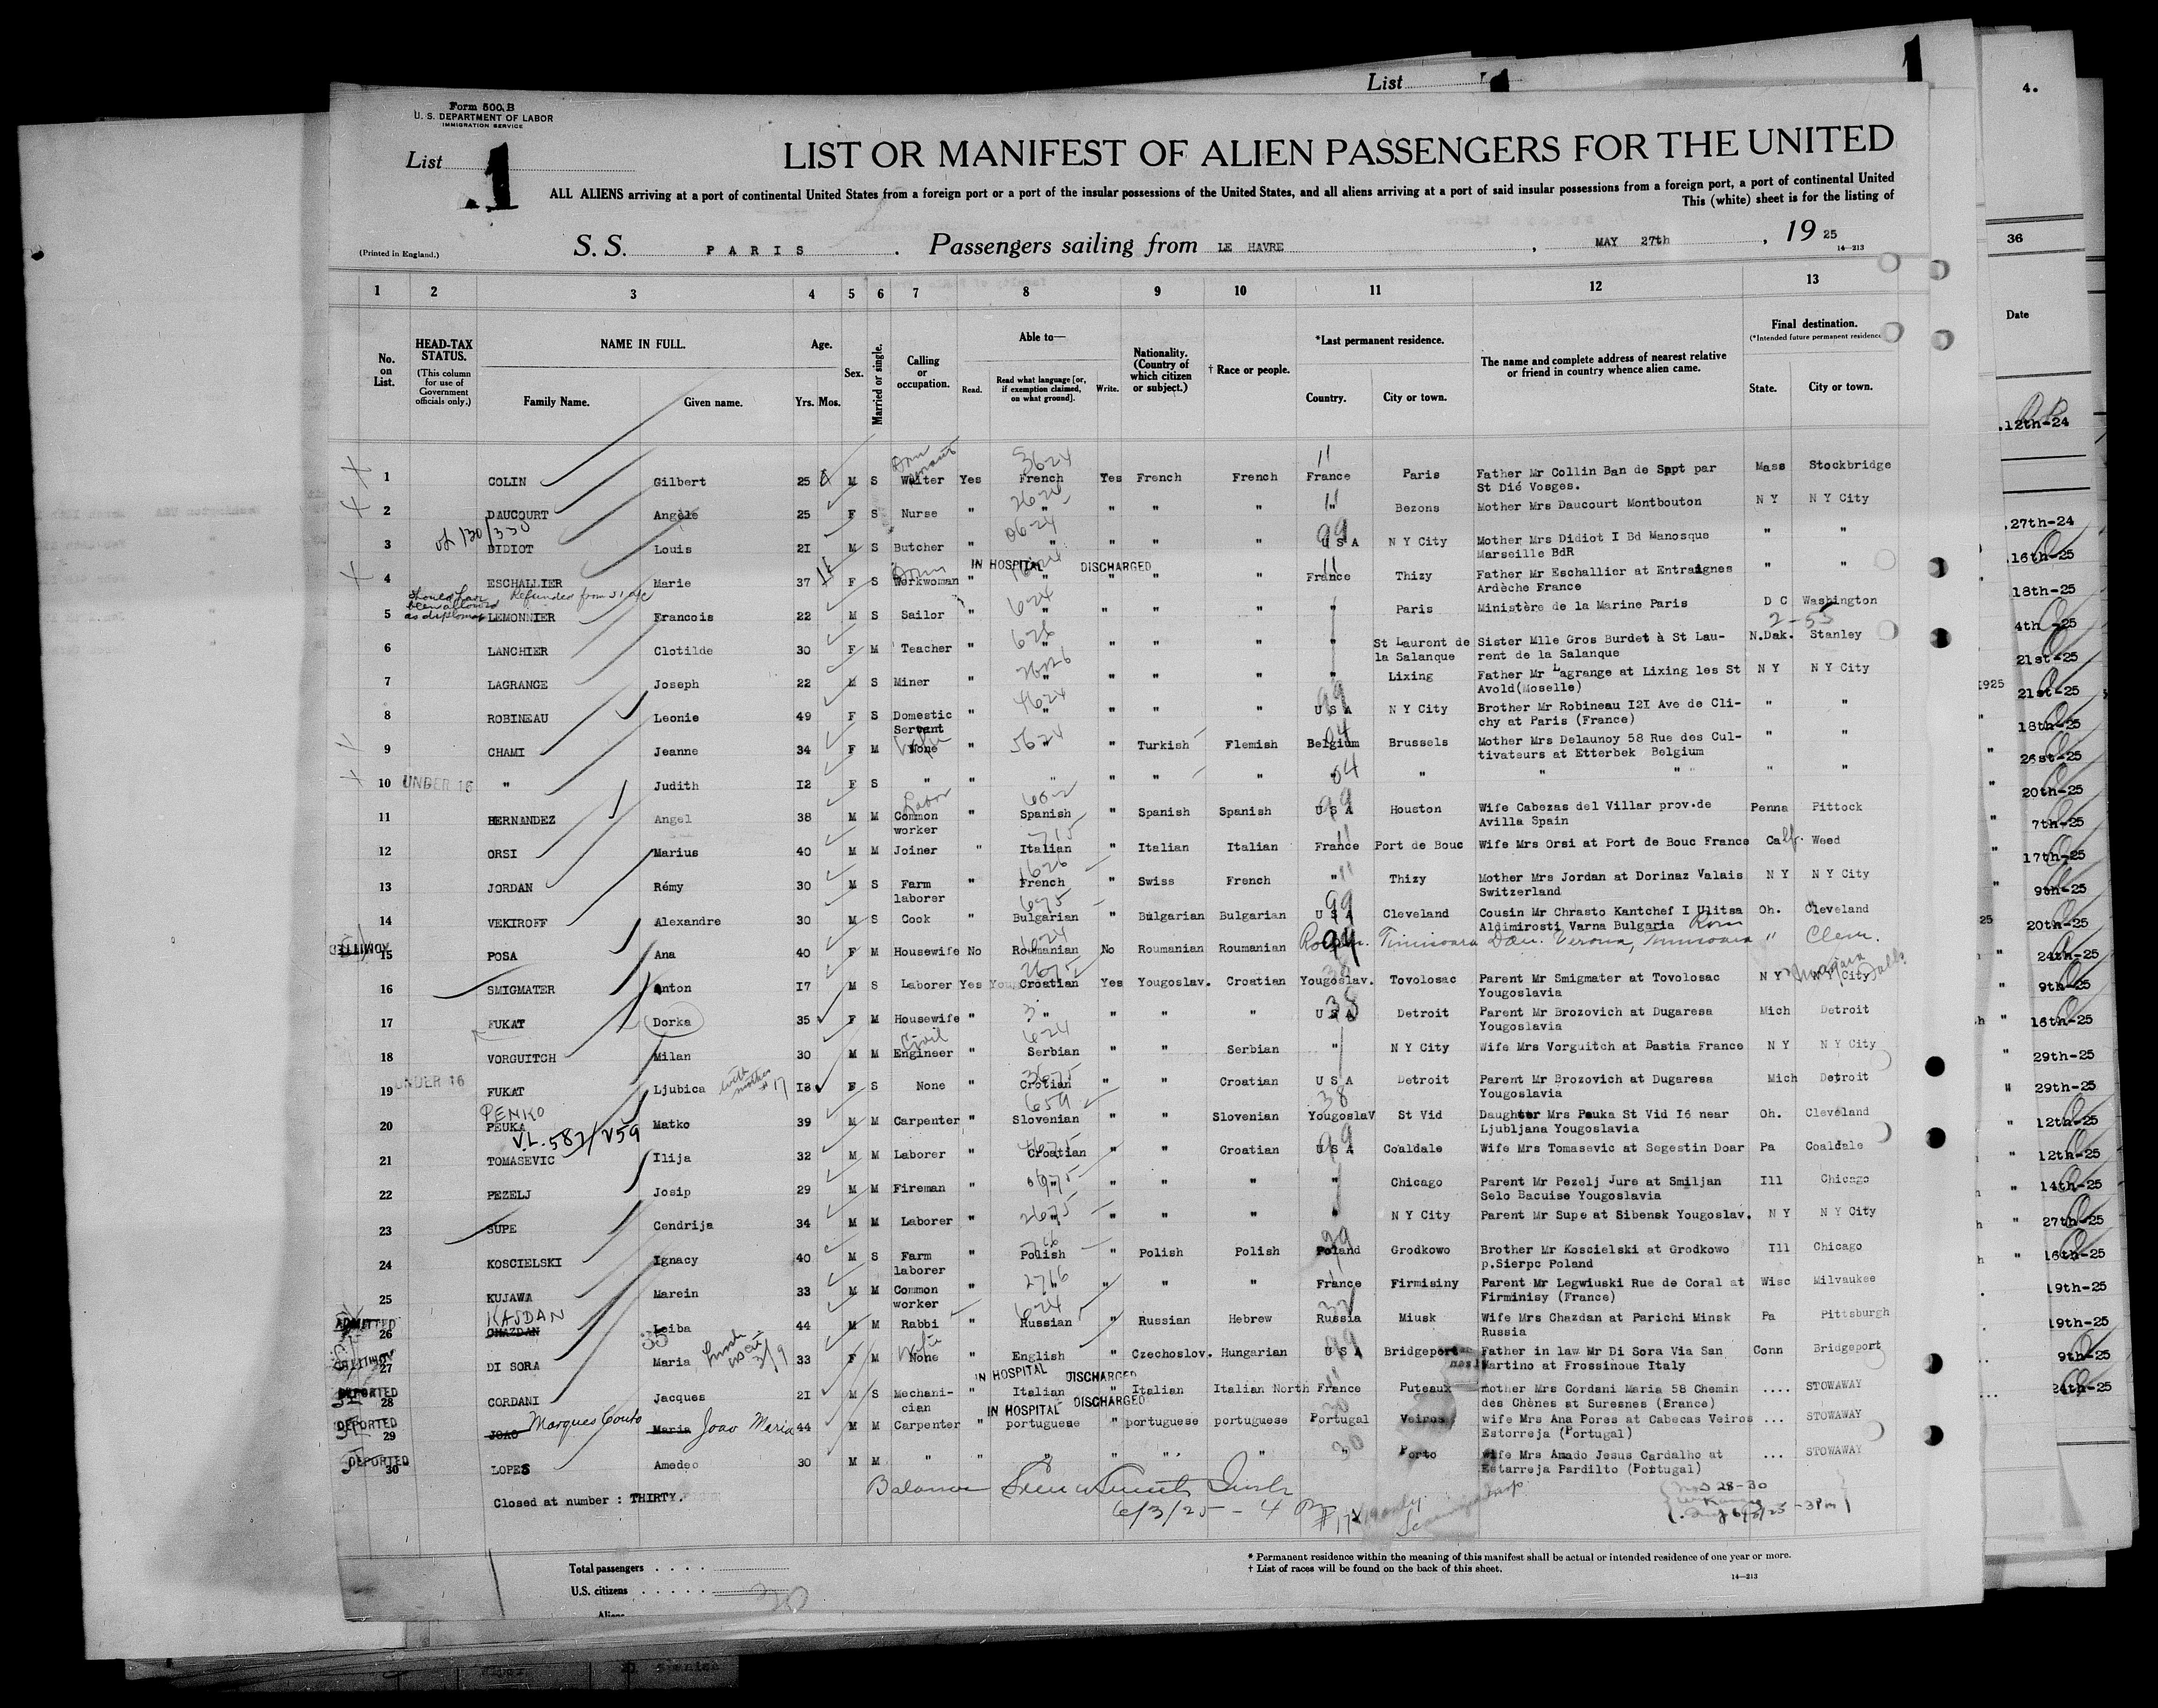 List 1
Form 500 B
U. S. DEPARTMENT OF LABOR
IMMIGRATION SERVICE
List 1
LIST OR MANIFEST OF ALIEN PASSENGERS FOR THE UNITED
ALL ALIENS arriving at a port of continental United States from a foreign port or a port of the insular possessions of the United States, and all aliens arriving at a port of said insular possessions from a foreign port, a port of continental United
This (white) sheet is for the listing of
(Printed in England.)
S. S. PARIS . Passengers sailing from LE HAVRE , MAY 27th , 19 25
14—213
1 2 3 4 5 6 7 8 9 10 11 12 13
No. on List.
HEAD-TAX STATUS. (This column for use of Government officials only.)
NAME IN FULL.
Family Name. Given name.
Age.
Yrs. Mos.
Sex.
Married or single.
Calling or occupation.
Able to—
Read. Read what language [or, if exemption claimed, on what ground]. Write.
Nationality. (Country of which citizen or subject.)
† Race or people.
*Last permanent residence.
Country. City or town.
The name and complete address of nearest relative or friend in country whence alien came.
Final destination.
(*Intended future permanent residence)
State. City or town.
1 COLIN Gilbert 25 M S Waiter Yes French Yes French French France Paris Father Mr Collin Ban de Sapt par Mass Stockbridge
St Dié Vosges.
2 DAUCOURT Angèle 25 F S Nurse " " " " " " Bezons Mother Mrs Daucourt Montbouton N Y N Y City
3 DIDIOT Louis 21 M S Butcher " " " " " U S A N Y City Mother Mrs Didiot I Bd Manosque " "
Marseille BdR
IN HOSPITAL DISCHARGED
4 ESCHALLIER Marie 37 F S Workwoman " " " " " France Thizy Father Mr Eschallier at Entraignes " "
Ardèche France
should have been allowed as diplomat
5 LEMONNIER Francois 22 M S Sailor " " " " " " Paris Ministère de la Marine Paris D C Washington
6 LANCHIER Clotilde 30 F M Teacher " " " " " " St Laurent de la Salanque Sister Mlle Gros Burdet à St Lau- N.Dak. Stanley
rent de la Salanque
7 LAGRANGE Joseph 22 M S Miner " " " " " " Lixing Father Mr Lagrange at Lixing les St N Y N Y City
Avold(Moselle)
8 ROBINEAU Leonie 49 F S Domestic Servant " " " " " U S A N Y City Brother Mr Robineau I2I Ave de Cli- " "
chy at Paris (France)
9 CHAMI Jeanne 34 F M None " " " Turkish Flemish Belgium Brussels Mother Mrs Delaunoy 58 Rue des Cul- " "
tivateurs at Etterbek Belgium
10 UNDER 16 " Judith I2 F S " " " " " " " " " " " " "
11 HERNANDEZ Angel 38 M M Common worker " Spanish " Spanish Spanish U S A Houston Wife Cabezas del Villar prov.de Penna Pittock
Avilla Spain
12 ORSI Marius 40 M M Joiner " Italian " Italian Italian France Port de Bouc Wife Mrs Orsi at Port de Bouc France Calf. Weed
13 JORDAN Rémy 30 M S Farm laborer " French " Swiss French " Thizy Mother Mrs Jordan at Dorinaz Valais N Y N Y City
Switzerland
14 VEKIROFF Alexandre 30 M S Cook " Bulgarian " Bulgarian Bulgarian U S A Cleveland Cousin Mr Chrasto Kantchef I Ulitsa Oh. Cleveland
Aldimirosti Varna Bulgaria
15 POSA Ana 40 F M Housewife No Roumanian No Roumanian Roumanian Timisoara " Clev.
16 SMIGMATER Anton I7 M S Laborer Yes Croatian Yes Yougoslav. Croatian Yougoslav. Tovolosac Parent Mr Smigmater at Tovolosac N Y N Y City
Yougoslavia
17 FUKAT Dorka 35 F M Housewife " " " " " U S A Detroit Parent Mr Brozovich at Dugaresa Mich Detroit
Yougoslavia
18 VORGUITCH Milan 30 M M Civil Engineer " Serbian " " Serbian " N Y City Wife Mrs Vorguitch at Bastia France N Y N Y City
19 UNDER 16 FUKAT Ljubica with mother # 17 I3 F S None " Crotian " " Croatian U S A Detroit Parent Mr Brozovich at Dugaresa Mich Detroit
Yougoslavia
PENKO
20 PEUKA Matko 39 M M Carpenter " Slovenian " " Slovenian Yougoslav St Vid Daughter Mrs Peuka St Vid I6 near Oh. Cleveland
Ljubljana Yougoslavia
V.L. 582/V59
21 TOMASEVIC Ilija 32 M M Laborer " Croatian " " Croatian U S A Coaldale Wife Mrs Tomasevic at Segestin Doar Pa Coaldale
22 PEZELJ Josip 29 M M Fireman " " " " " " Chicago Parent Mr Pezelj Jure at Smiljan Ill Chicago
Selo Bacuise Yougoslavia
23 SUPE Cendrija 34 M M Laborer " " " " " " N Y City Parent Mr Supe at Sibensk Yougoslav. N Y N Y City
24 KOSCIELSKI Ignacy 40 M S Farm laborer " Polish " Polish Polish Poland Grodkowo Brother Mr Koscielski at Grodkowo Ill Chicago
p.Sierpc Poland
25 KUJAWA Marein 33 M M Common worker " " " " " France Firmisiny Parent Mr Legwiuski Rue de Coral at Wisc Milvaukee
Firminisy (France)
KASDAN
ADMITTED 26 CHAZDAN Leiba 44 M M Rabbi " Russian " Russian Hebrew Russia Miusk Wife Mrs Chazdan at Parichi Minsk Pa Pittsburgh
Russia
27 DI SORA Maria 33 F M None " English " Czechoslov. Hungarian U S A Bridgeport Father in law Mr Di Sora Via San Conn Bridgeport
Martino at Frossinoue Italy
IN HOSPITAL DISCHARGED
DEPORTED 28 CORDANI Jacques 2I M S Mechani-cian " Italian " Italian Italian North France Puteaux mother Mrs Cordani Maria 58 Chemin .... STOWAWAY
des Chènes at Suresnes (France)
IN HOSPITAL DISCHARGED
DEPORTED 29 JOAO Marques Couto Maria Joao Maria 44 M M Carpenter " portuguese " portuguese portuguese Portugal Veiros wife Mrs Ana Pores at Cabecas Veiros ... STOWAWAY
Estorreja (Portugal)
DEPORTED 30 LOPES Amedeo 30 M M " " " " " " " Porto wife Mrs Amado Jesus Cardalho at ... STOWAWAY
Estarreja Pardilto (Portugal)
Closed at number : THIRTY.
6/3/25 - 4
Total passengers . . . .
U.S. citizens . . . . .
Aliens
30
* Permanent residence within the meaning of this manifest shall be actual or intended residence of one year or more.
† List of races will be found on the back of this sheet.
14—213
4.
36
Date
.12th-24
.27th-24
.16th-25
.18th-25
4th-25
21st-25
21st-25
18th-25
26st-25
20th-25
7th-25
17th-25
9th-25
20th-25
24th-25
9th-25
16th-25
29th-25
29th-25
12th-25
12th-25
14th-25
27th-25
16th-25
19th-25
19th-25
9th-25
24th-25